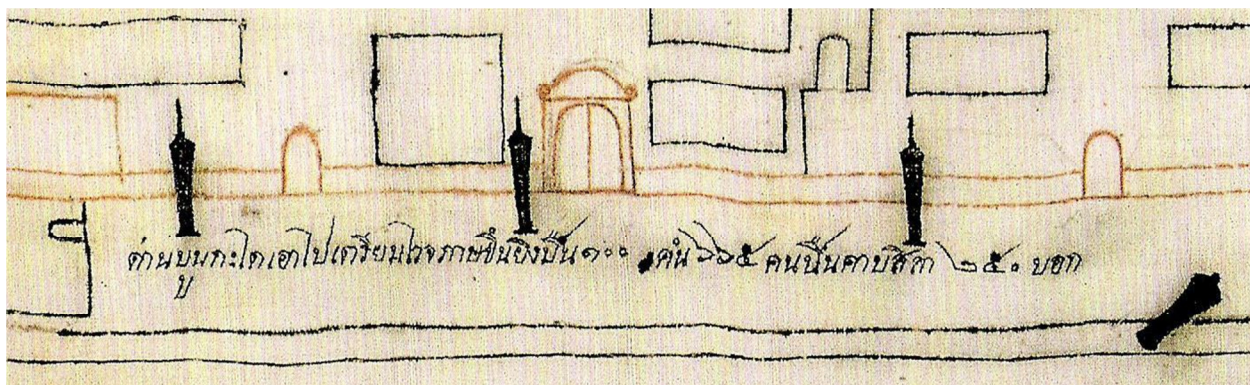 ด่านบูนกะไดเอาไปเตรียมไว้ ขึ้นยิงปืน ๑๐๐ คน ๖๖๕ คนปืนคาบสิลา ๒๕๐ บอก